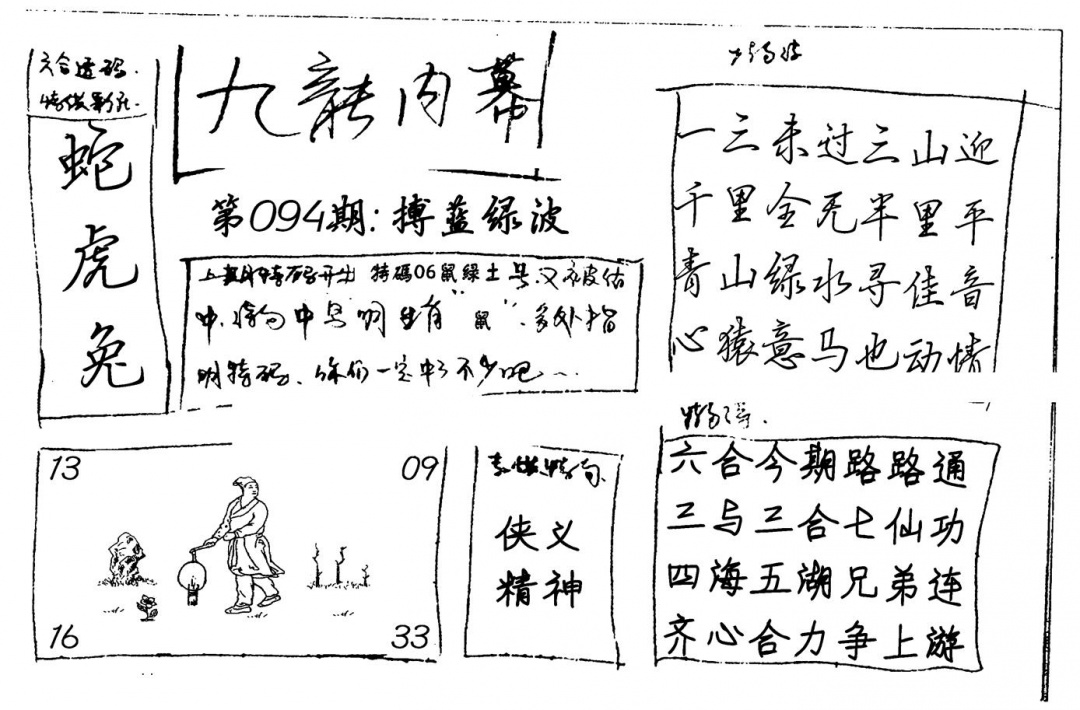 六合透码
蛇
虎
兔
九龍内幕
第094期:搏蓝绿波
上期特码开出 特碼06鼠绿土号又被估
中 中 明 生肖"鼠" 多处指
明特码、你们一定中了不少吧
一三未过三山迎
千里全无半里平
青山绿水寻佳音
心猿意马也动情
13
09
16
33
侠义
精神
六合今期路路通
三与三合七仙功
四海五湖兄弟连
齐心合力争上游